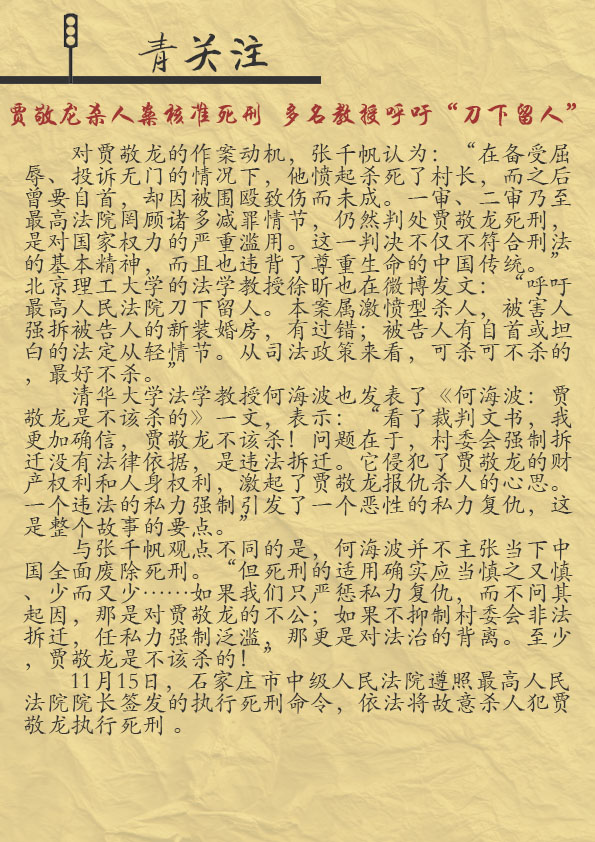 青关注
贾敬龙杀人案核准死刑 多名教授呼吁“刀下留人”
对贾敬龙的作案动机，张千帆认为：“在备受屈
辱、投诉无门的情况下，他愤起杀死了村长，而之后
曾要自首，却因被围殴致伤而未成。一审、二审乃至
最高法院罔顾诸多减罪情节，仍然判处贾敬龙死刑，
是对国家权力的严重滥用。这一判决不仅不符合刑法
的基本精神，而且也违背了尊重生命的中国传统。”
北京理工大学的法学教授徐昕也在微博发文：“呼吁
最高人民法院刀下留人。本案属激愤型杀人，被害人
强拆被告人的新装婚房，有过错；被告人有自首或坦
白的法定从轻情节。从司法政策来看，可杀可不杀的
，最好不杀。”
清华大学法学教授何海波也发表了《何海波：贾
敬龙是不该杀的》一文，表示：“看了裁判文书，我
更加确信，贾敬龙不该杀！问题在于，村委会强制拆
迁没有法律依据，是违法拆迁。它侵犯了贾敬龙的财
产权利和人身权利，激起了贾敬龙报仇杀人的心思。
一个违法的私力强制引发了一个恶性的私力复仇，这
是整个故事的要点。”
与张千帆观点不同的是，何海波并不主张当下中
国全面废除死刑。“但死刑的适用确实应当慎之又慎
、少而又少……如果我们只严惩私力复仇，而不问其
起因，那是对贾敬龙的不公；如果不抑制村委会非法
拆迁，任私力强制泛滥，那更是对法治的背离。至少
，贾敬龙是不该杀的！”
11月15日，石家庄市中级人民法院遵照最高人民
法院院长签发的执行死刑命令，依法将故意杀人犯贾
敬龙执行死刑 。